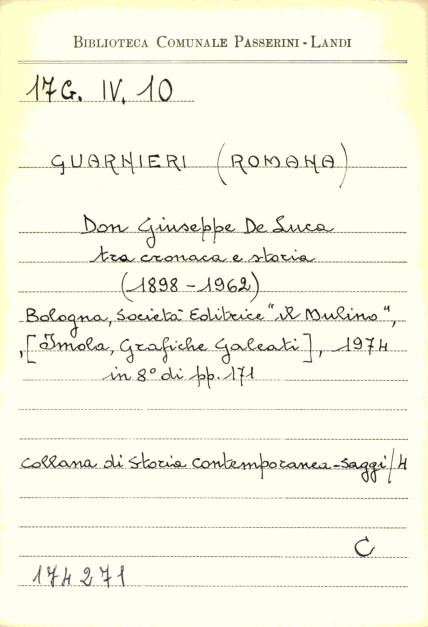 BIBLIOTECA COMUNALE PASSERINI - LANDI
17G. IV. 10
GUARNIERI (ROMANA)
Don Giuseppe De Luca
tra cronaca e storia
(1898 - 1962)
Bologna, Società Editrice "il Mulino",
,[Imola, Grafiche Galeati], 1974
in 8° di pp. 171
Collana di Storia Contemporanea - Saggi/4
C
174271